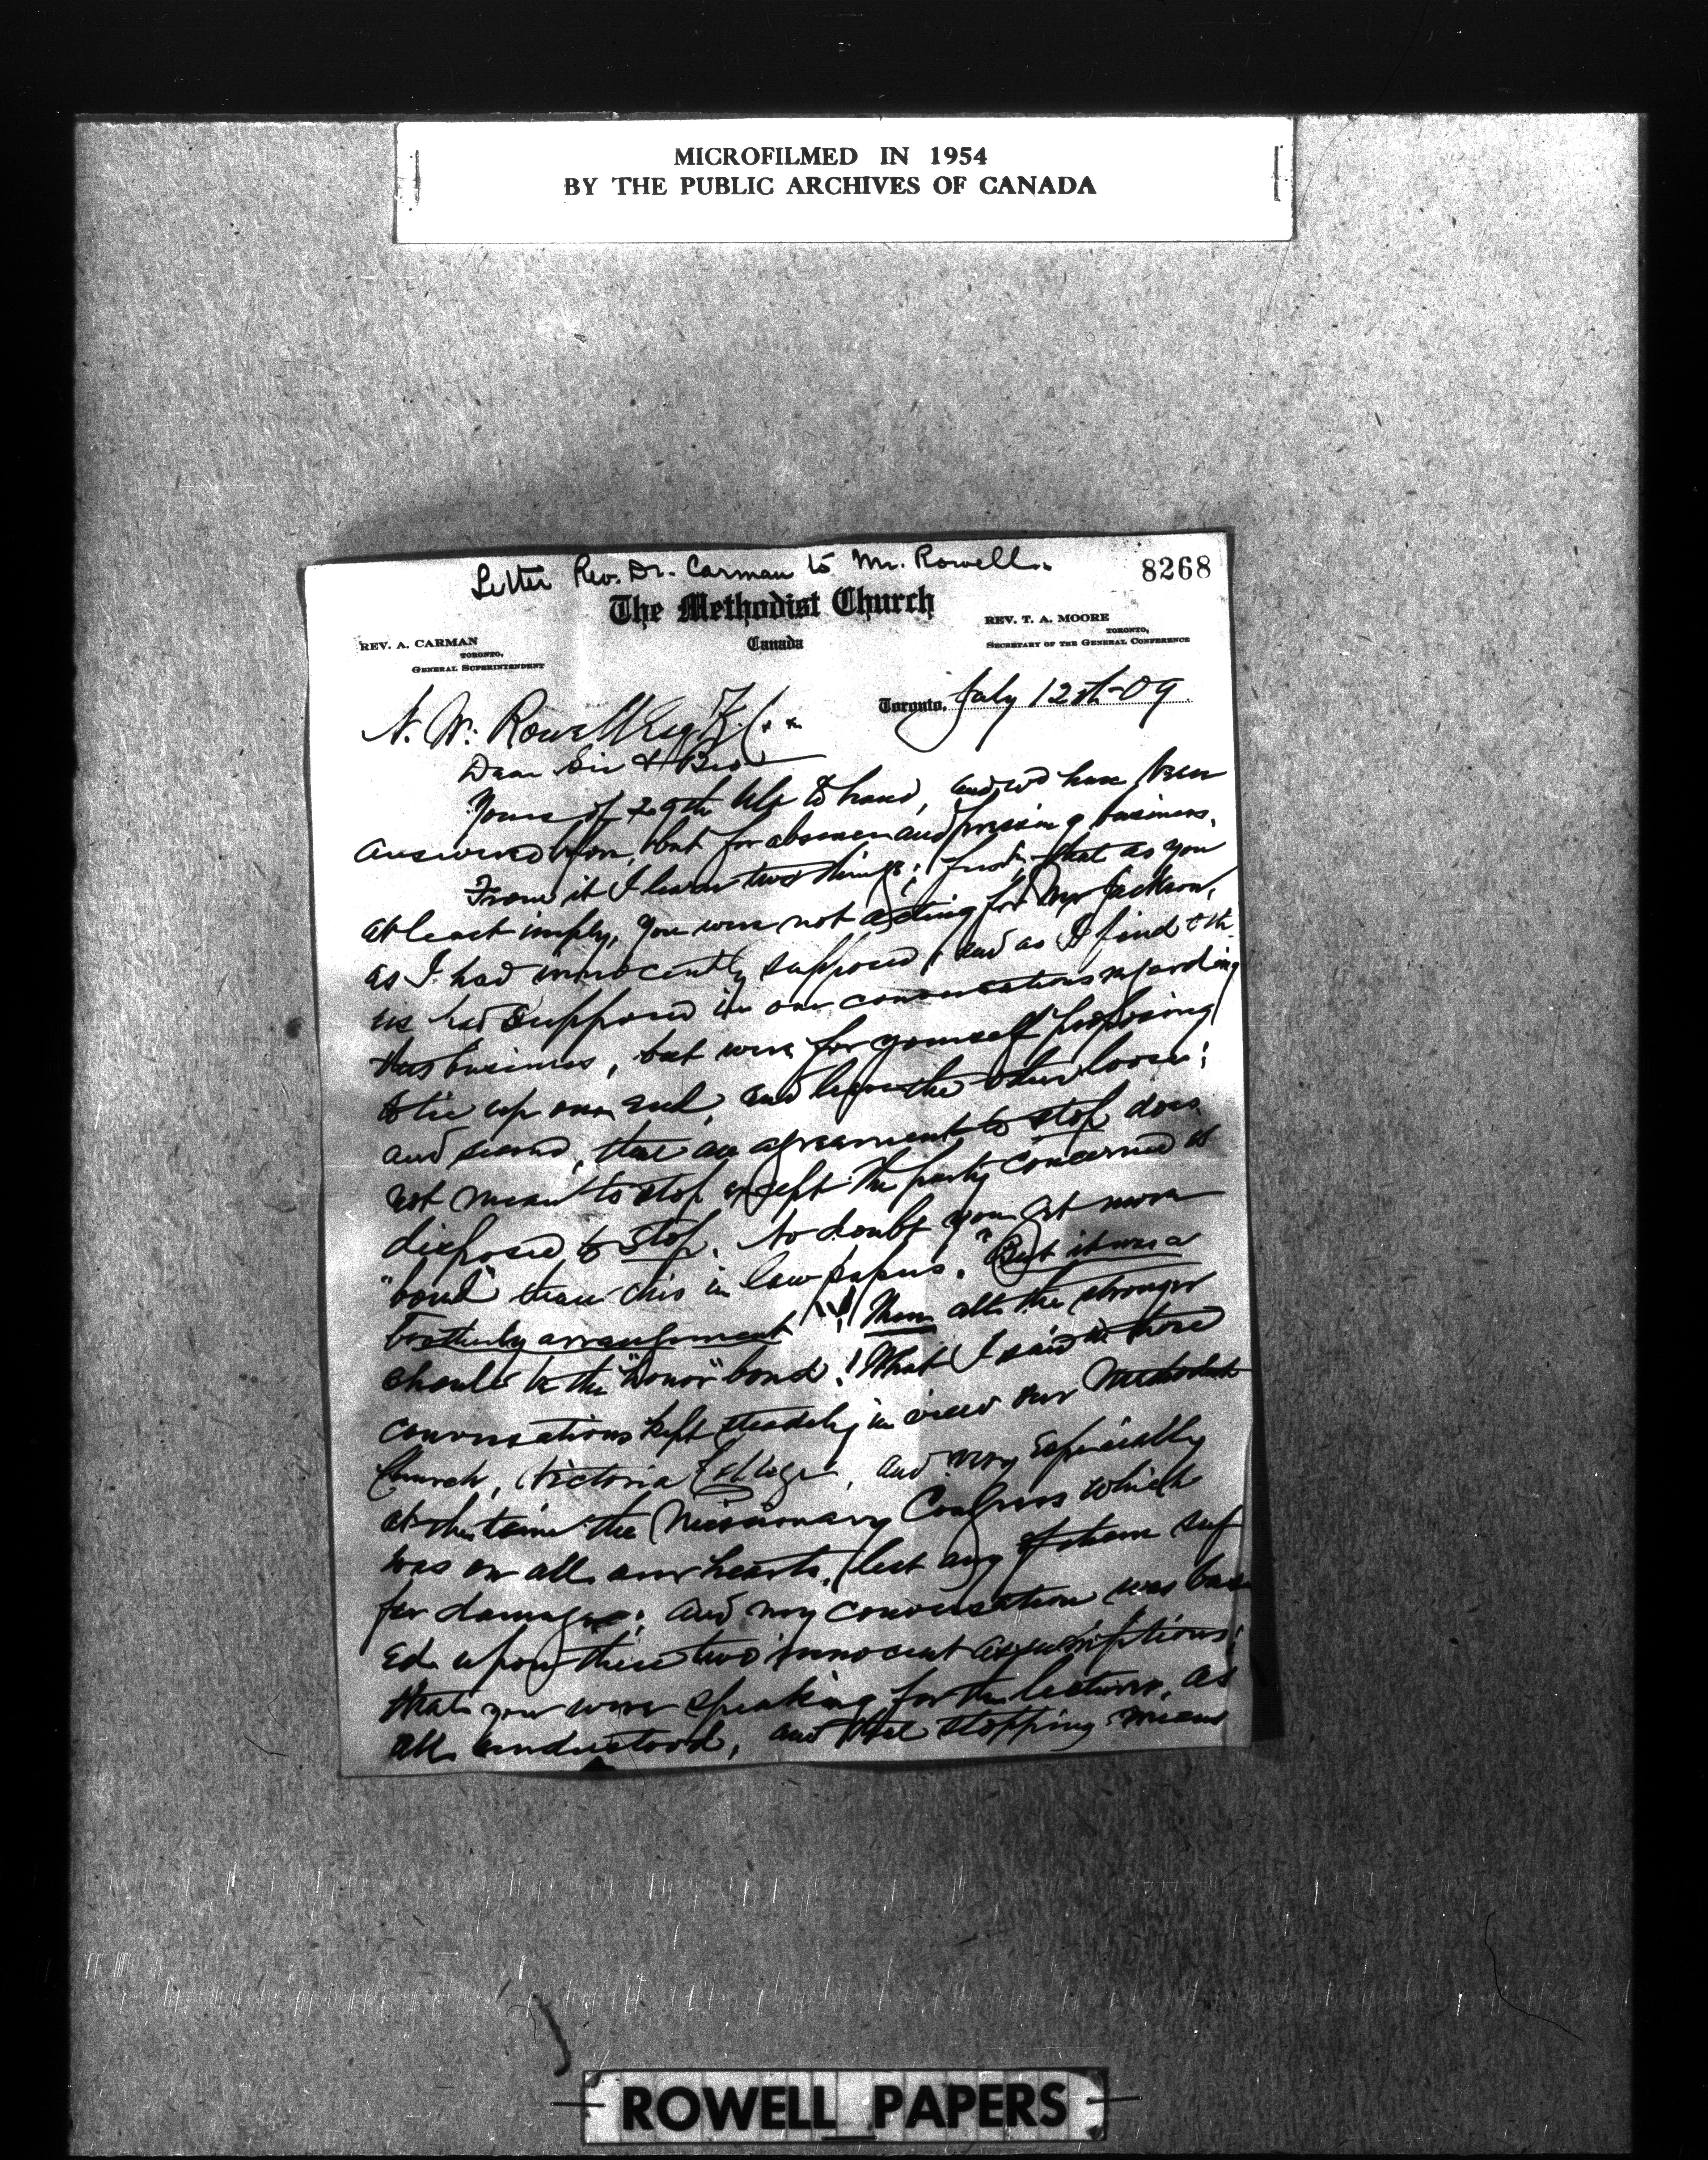 MICROFILMED IN 1954
BY THE PUBLIC ARCHIVES OF CANADA
Letter Rev. Dr. Carman to Mr. Rowell.
8268
The Methodist Church
Canada
REV. A. CARMAN
TORONTO,
GENERAL SUPERINTENDENT
REV. T. A. MOORE
TORONTO,
SECRETARY OF THE GENERAL CONFERENCE
Toronto, July 12th-09
N. W. Rowell Esq K.C.
Dear Sir & Bro
Yours of 29th Ult to hand, and wd have been
answered before, but for absence and pressing business.
From it I learn two things; first, that as you
at least imply, you were not acting for Mr Jackson,
as I had innocently supposed, and as I find
us had supposed in our conversations regarding
this business, but were for yourself proposing
to tie up one end, and leave the other loose;
and second, that an agreement to stop does
not mean to stop except the party concerned is
disposed to stop. No doubt you get more
"bond" than this in law papers. "But it was a
brotherly arrangement"! Then all the stronger
should be the "honor" bond! What I said in those
conversations kept steadily in view our Methodist
Church, Victoria College, and very especially
at the time the Missionary Congress which
was on all our hearts, lest any of them suf
fer damage; and my conversation was bas
ed upon these two innocent assumptions;
that you were speaking for the lecturer, as
all understood, and that stopping means
ROWELL PAPERS